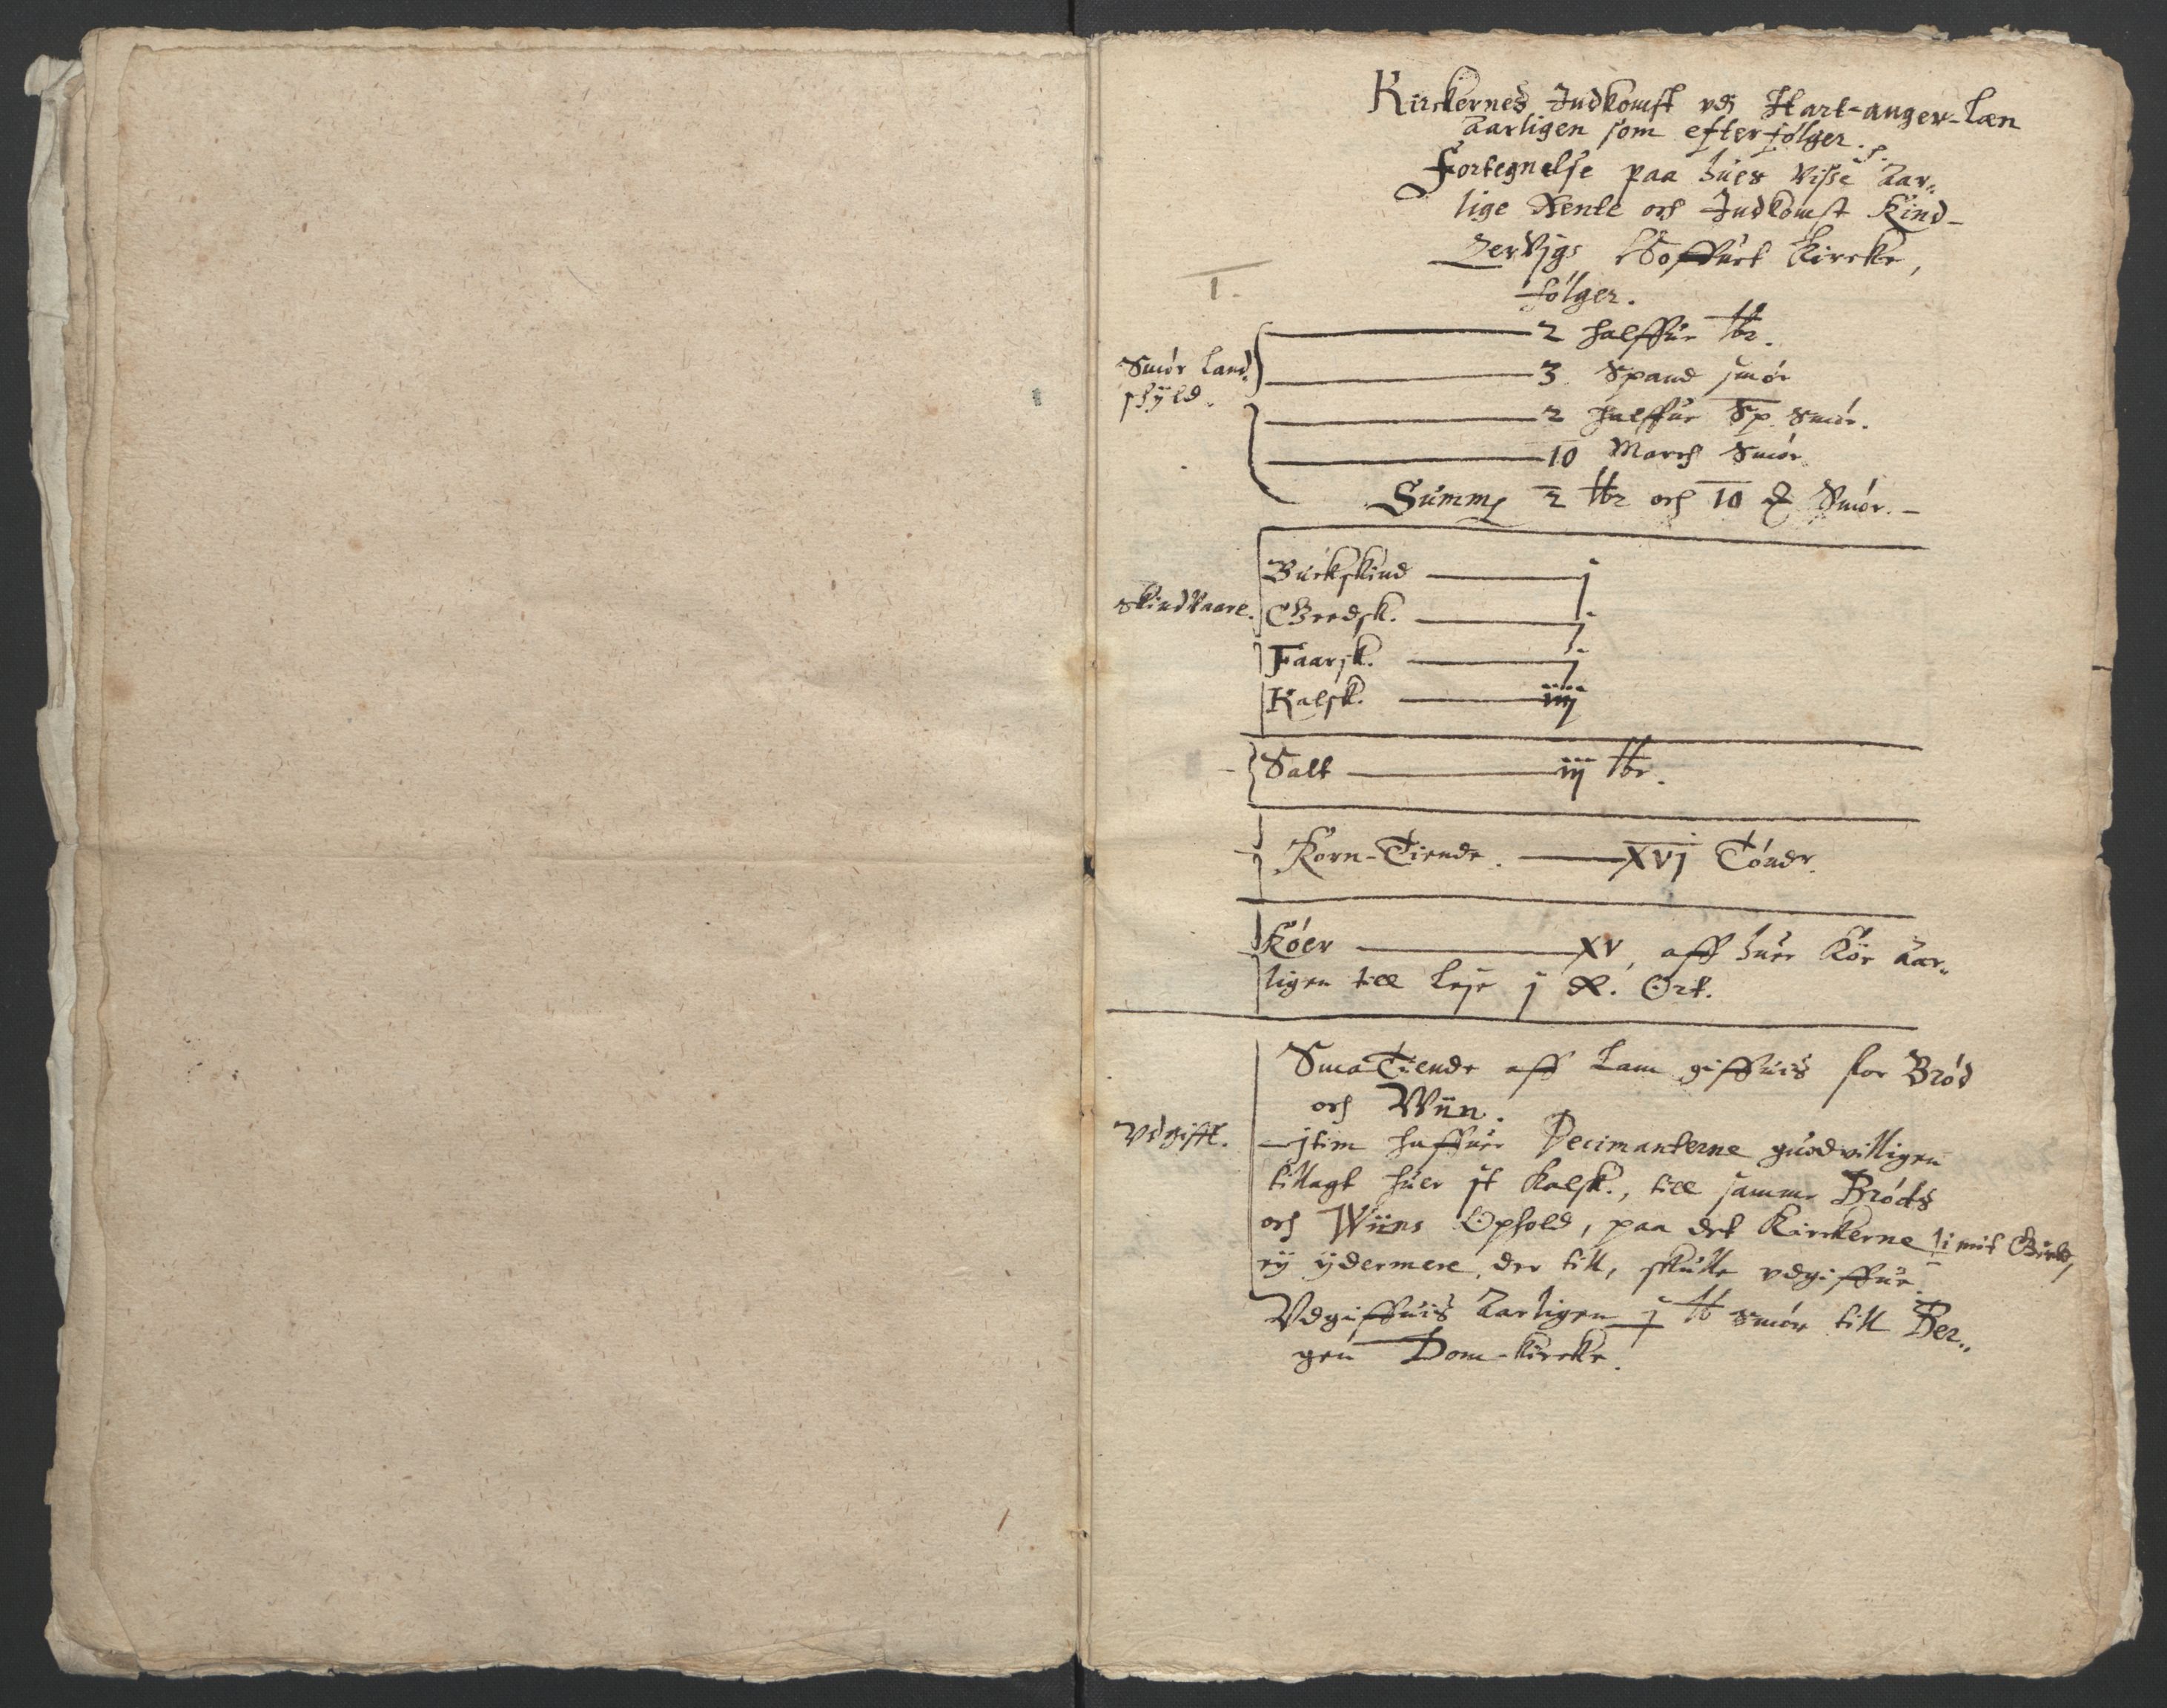 Kirckernes Indkomst vdj Hart-anger-Læn
Aarligen som efterfølger.
Fortegnelse paa hues Visse Aar-
lige Rente och Indkomst Kind-
zervigs Hoffuet Kircke,
følger.
1.
Smør Land-
skyld.
2 halffue tbr.
3 Spand smør
2 halffue Sp. Smør.
10 March Smør
Summa 2 tbr och 10 Smør.
Skindvaare.
Buckskind j
Giedsk. j
Faarsk. j
Kalsk. iiij
Salt iij tbr.
Korn-Tiende. XVj Tønder.
Køer XV, aff huer Koe Aar-
ligen till Leje j R. Ort.
Vdgifft.
Sma Tiende aff Lam giffuis for Brød
och Wiin.
Item haffuer Decimanterne guodvilligen
tillagt huer it Kalsk., till samme Brøds
och Wiins Ophold, paa det Kirckerne
ey ydermere der till, skulle vdgiffue.
Vdgiffuis Aarligen j tb smør till Ber-
gen Dom-kircke.